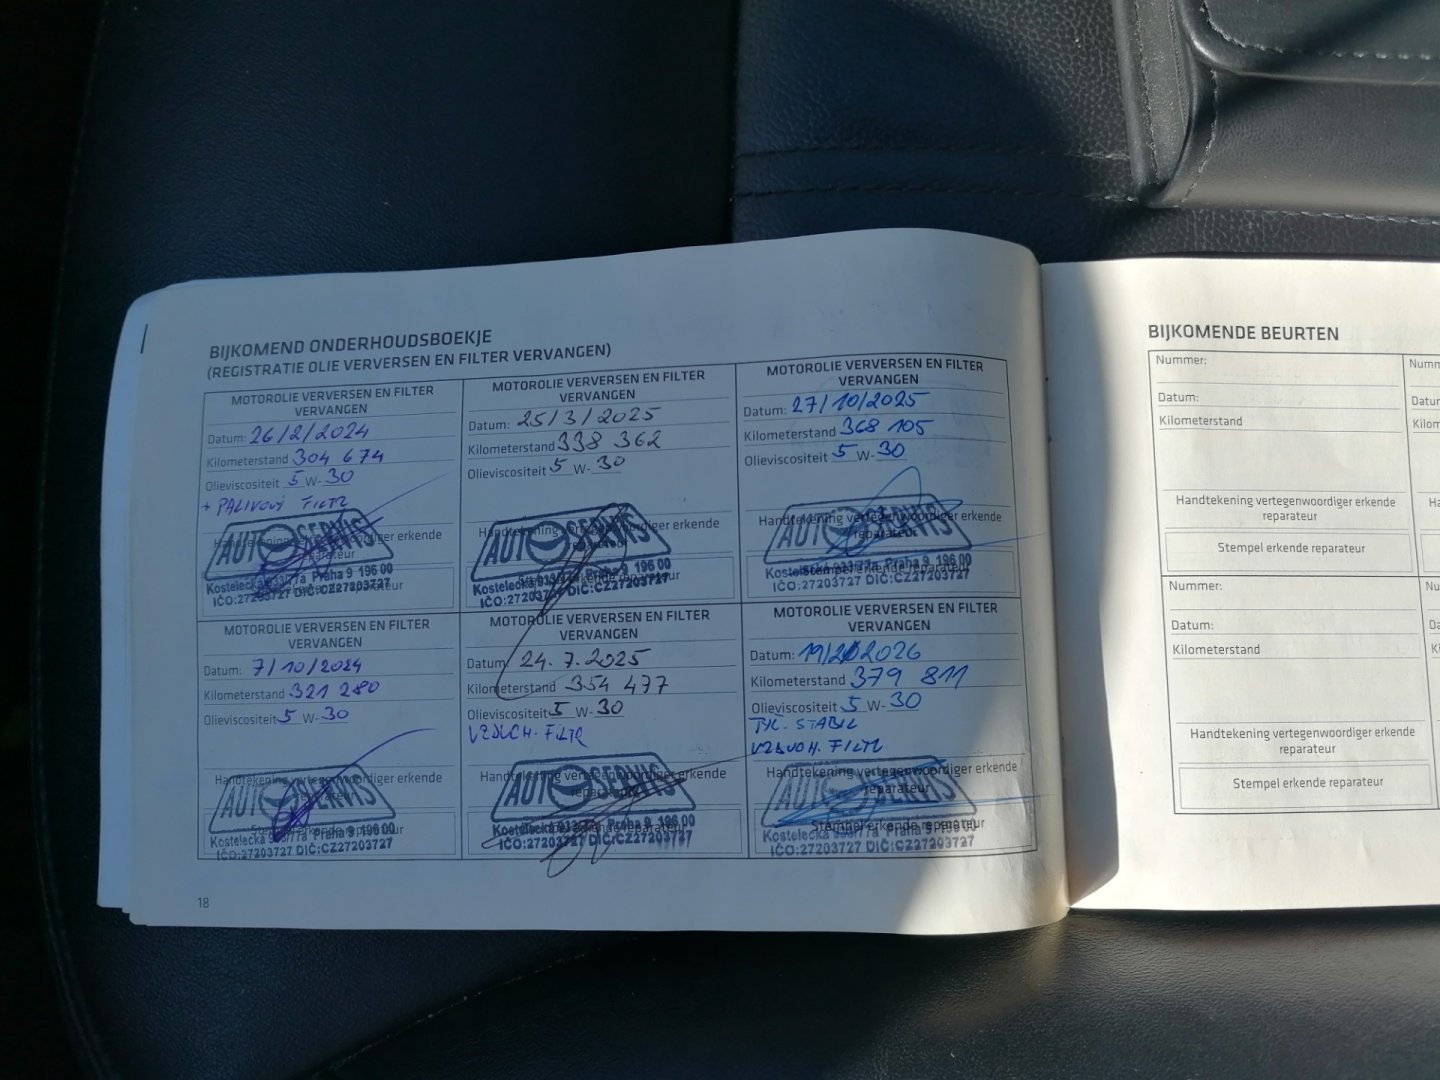 BIJKOMEND ONDERHOUDSBOEKJE
(REGISTRATIE OLIE VERVERSEN EN FILTER VERVANGEN)
MOTOROLIE VERVERSEN EN FILTER
VERVANGEN
Datum: 26/2/2024
Kilometerstand 304 674
Olieviscositeit 5 W-30
+ PALIVOVÝ FILTR
Handtekening vertegenwoordiger erkende
reparateur
AUTOSERVIS
Kostelecká 933/77a Praha 9 196 00
IČO:27203727 DIČ:CZ27203727
MOTOROLIE VERVERSEN EN FILTER
VERVANGEN
Datum: 25/3/2025
Kilometerstand 338 362
Olieviscositeit 5 W-30
Handtekening vertegenwoordiger erkende
AUTOSERVIS
Kostelecká 933/77a Praha 9 196 00
IČO:27203727 DIČ:CZ27203727
MOTOROLIE VERVERSEN EN FILTER
VERVANGEN
Datum: 27/10/2025
Kilometerstand 368 105
Olieviscositeit 5 W-30
Handtekening vertegenwoordiger erkende
reparateur
AUTOSERVIS
Kostelecká 933/77a Praha 9 196 00
IČO:27203727 DIČ:CZ27203727
MOTOROLIE VERVERSEN EN FILTER
VERVANGEN
Datum: 7/10/2024
Kilometerstand 321 280
Olieviscositeit 5 W-30
Handtekening vertegenwoordiger erkende
reparateur
AUTOSERVIS
Stempel erkende reparateur
Kostelecká 933/77a Praha 9 196 00
IČO:27203727 DIČ:CZ27203727
MOTOROLIE VERVERSEN EN FILTER
VERVANGEN
Datum 24.7.2025
Kilometerstand 354 477
Olieviscositeit 5 W-30
VZDUCH. FILTR
Handtekening vertegenwoordiger erkende
reparateur
AUTOSERVIS
Kostelecká 933/77a Praha 9 196 00
IČO:27203727 DIČ:CZ27203727
MOTOROLIE VERVERSEN EN FILTER
VERVANGEN
Datum: 2026
Kilometerstand 379 811
Olieviscositeit 5 W-30
TYČ. STABIL
VZDUCH. FILTR
Handtekening vertegenwoordiger erkende
reparateur
AUTOSERVIS
Stempel erkende reparateur
Kostelecká 933/77a Praha 9 196 00
IČO:27203727 DIČ:CZ27203727
18
BIJKOMENDE BEURTEN
Nummer:
Datum:
Kilometerstand
Handtekening vertegenwoordiger erkende
reparateur
Stempel erkende reparateur
Nummer:
Datum:
Kilometerstand
Handtekening vertegenwoordiger erkende
reparateur
Stempel erkende reparateur